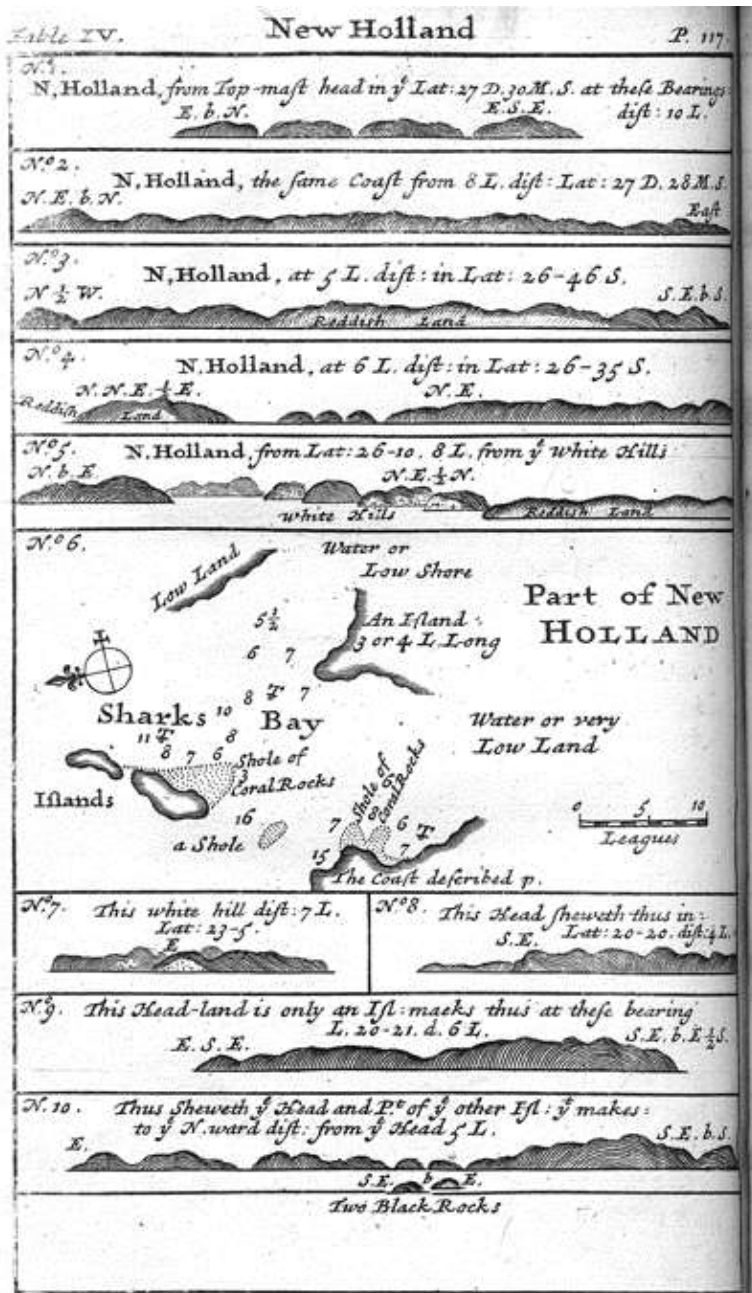 Table IV.
New Holland
P. 117
N.º1.
N, Holland, from Top-maſt head in yᵉ Lat: 27 D. 30 M. S. at theſe Bearings:
E. b. N.
E. S. E.
diſt: 10 L.
N.º2.
N, Holland, the ſame Coaſt from 8 L. diſt: Lat: 27 D. 28 M. S.
N. E. b. N.
Eaſt
N.º3.
N, Holland, at 5 L. diſt: in Lat: 26-46 S.
N ½ W.
S. E. b. S.
Reddish Land
N.º4.
N. Holland, at 6 L. diſt: in Lat: 26-35 S.
N. N. E. ½ E.
N. E.
Reddish
Land
N.º5.
N. Holland, from Lat: 26-10. 8 L. from yᵉ White Hills
N. b. E.
N. E. ½ N.
White Hills
Reddish Land
N.º6.
Low Land
Water or
Low Shore
Part of New
HOLLAND
5½
An Iſland
3 or 4 L. Long
6 7
8 7
L
Sharks Bay
10
8
11
8 7 6
Water or very
Low Land
Shole of
3
Coral Rocks
Iſlands
16
a Shole
Shole of
Coral Rocks
7
6
7
15
0 5 10
Leagues
The Coaſt deſcribed p.
N.º7.
This white hill diſt: 7 L.
Lat: 23-5.
E
N.º8.
This Head ſheweth thus in:
S. E.
Lat: 20-20. diſt: 4 L.
N.º9.
This Head-land is only an Iſl: maeks thus at theſe bearing
L. 20-21. d. 6 L.
E. S. E.
S. E. b. E ½ S.
N. 10.
Thus Sheweth yᵉ Head and P.ᵗ of yᵉ other Iſl: yᵗ makes:
to yᵉ N. ward diſt: from yᵉ Head 5 L.
E.
S. E. b. S.
S. E. b E.
Two Black Rocks